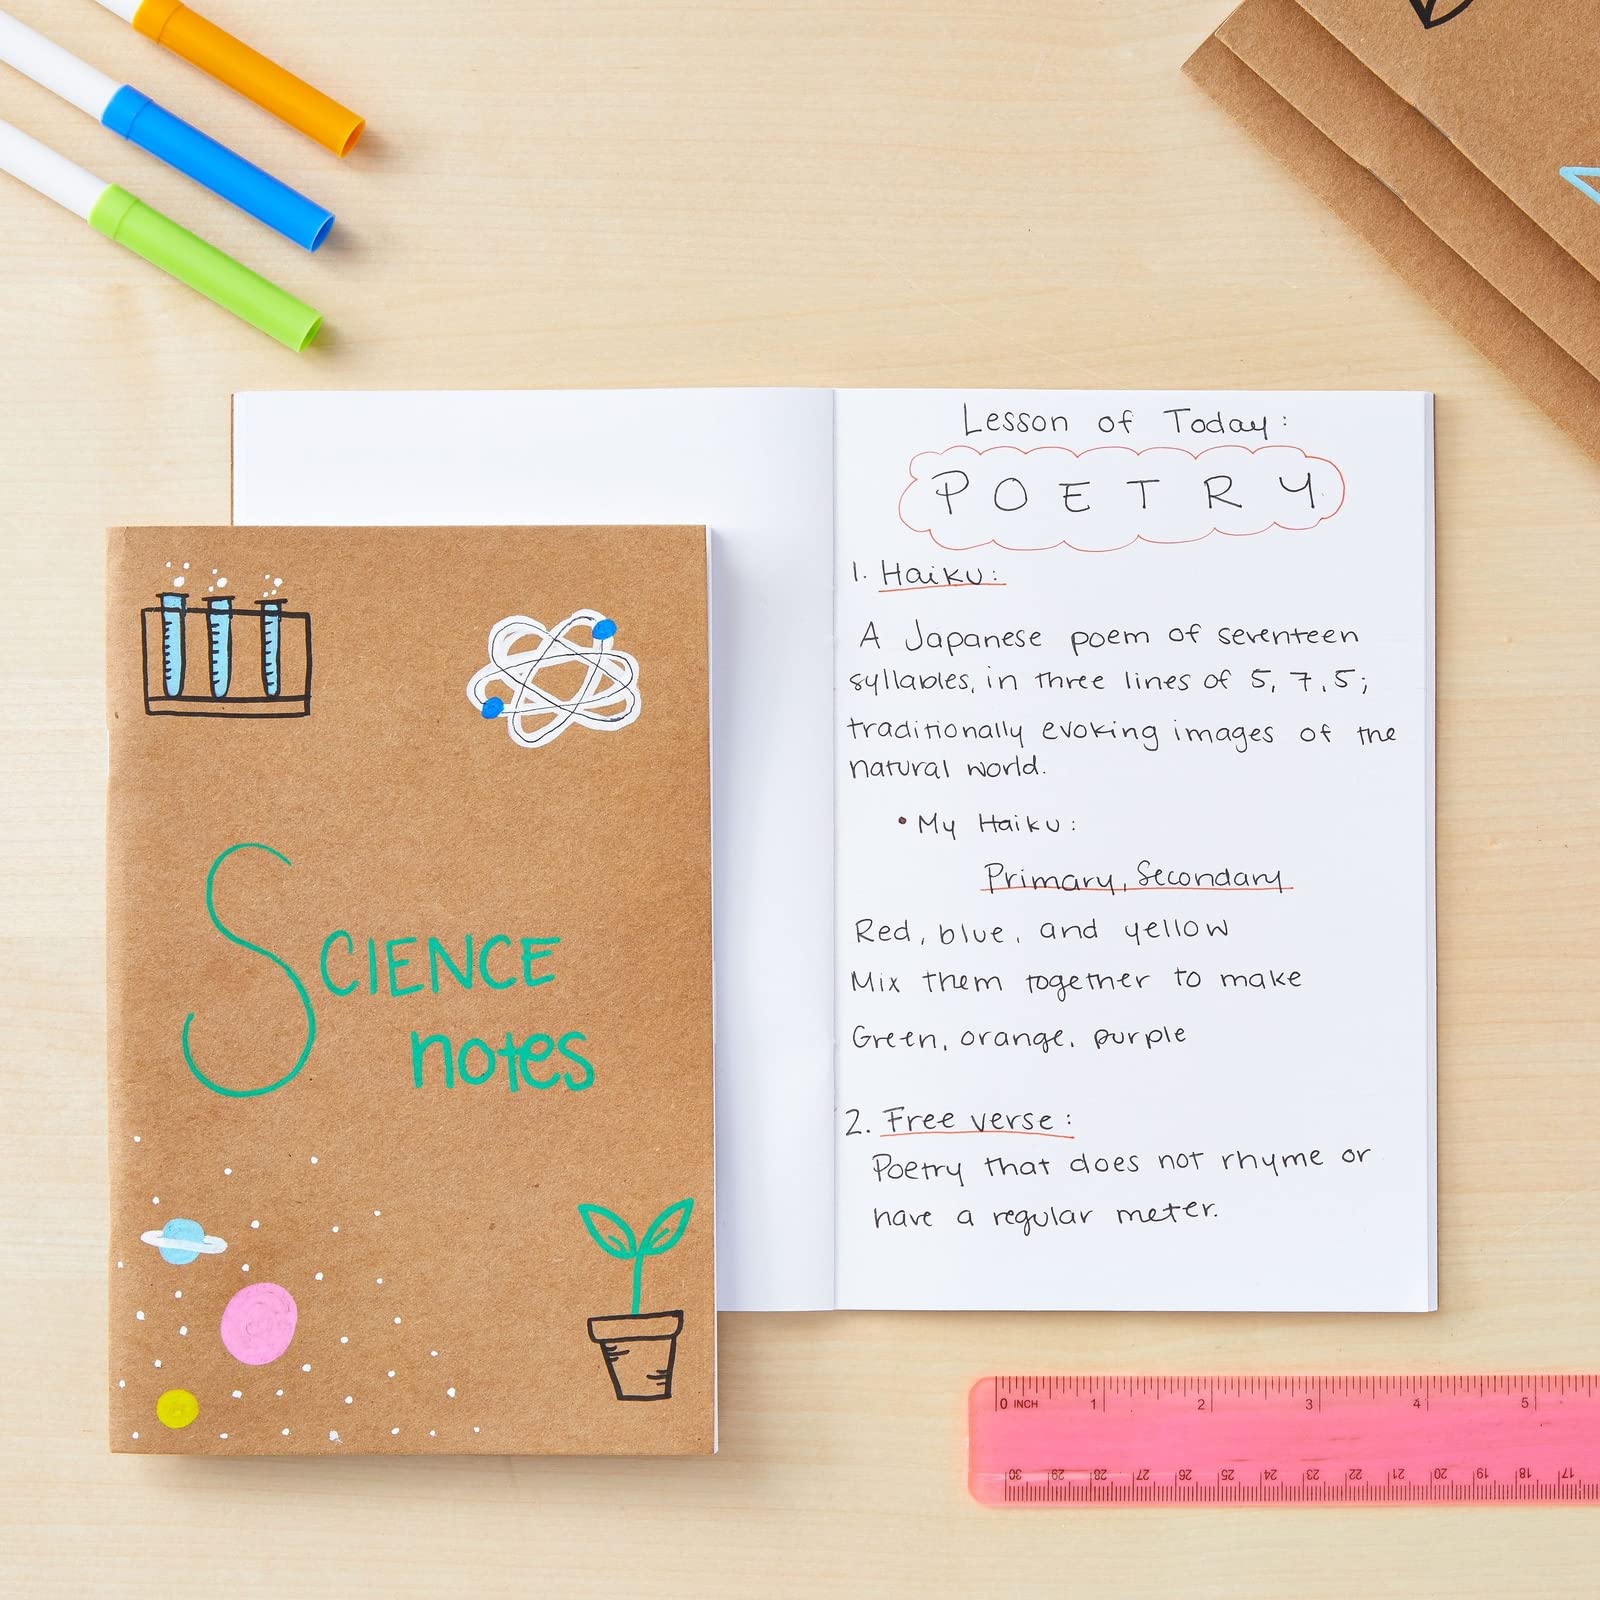 SCIENCE
notes
Lesson of Today:
POETRY
1. Haiku:
A Japanese poem of seventeen
syllables, in three lines of 5, 7, 5;
traditionally evoking images of the
natural world.
• My Haiku:
Primary, Secondary
Red, blue, and yellow
Mix them together to make
Green, orange, purple
2. Free verse:
Poetry that does not rhyme or
have a regular meter.
0 INCH 1 2 3 4 5
30 29 28 27 26 25 24 23 22 21 20 19 18 17